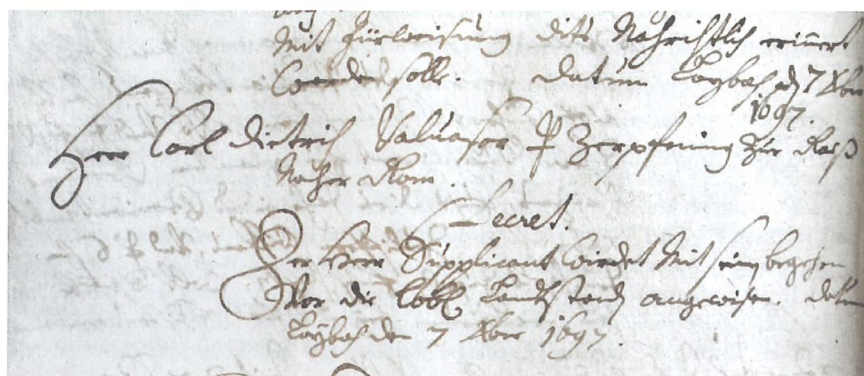 Mit fürweisung dits Nachrichtlich erinnert
werden solle. Datum Laybach den 7 Xber
1697.
Herr Carl Dietrich Valvasor P Zerpfening Zur Raiß
Nacher Rom.
Decret.
Der Herr Supplicant wirdet Mit sein begehren
Vor die Löbl Landtständ angewisen. Datum
Laybach den 7 Xber 1697.